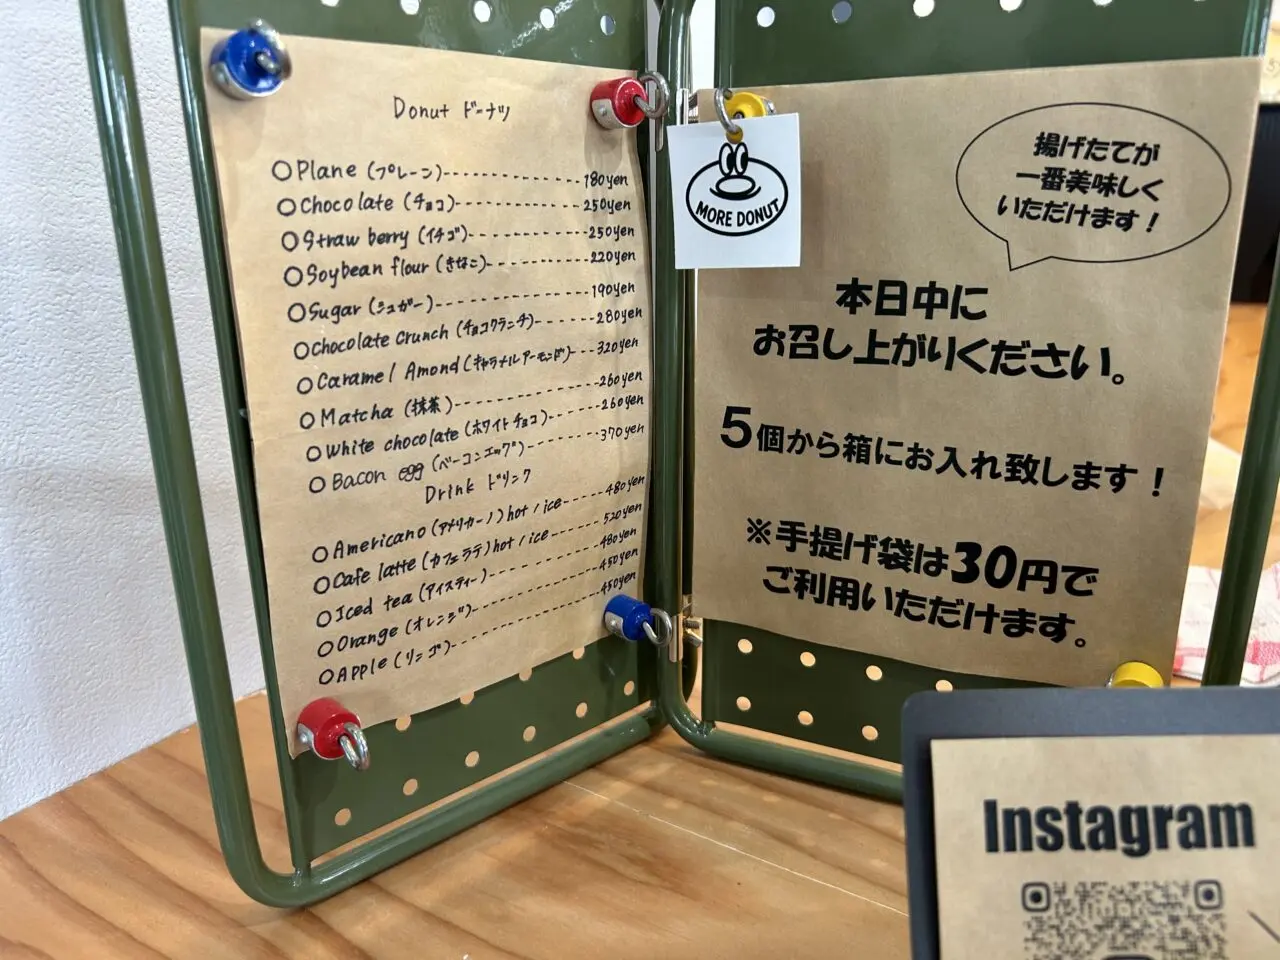 Donut ドーナツ
○Plane (プレーン)---180yen
○Chocolate (チョコ)---250yen
○Straw berry (イチゴ)---250yen
○Soybean flour (きなこ)---220yen
○Sugar (シュガー)---190yen
○Chocolate Crunch (チョコクランチ)---280yen
○Caramel Amond (キャラメルアーモンド)---320yen
○Matcha (抹茶)---260yen
○White chocolate (ホワイトチョコ)---260yen
○Bacon egg (ベーコンエッグ)---370yen
Drink ドリンク
○Americano (アメリカーノ) hot / ice---480yen
○Cafe latte (カフェラテ) hot / ice---520yen
○Iced tea (アイスティー)---480yen
○Orange (オレンジ)---450yen
○Apple (リンゴ)---450yen
MORE DONUT
揚げたてが
一番美味しく
いただけます!
本日中に
お召し上がりください。
5個から箱にお入れ致します!
※手提げ袋は30円で
ご利用いただけます。
Instagram